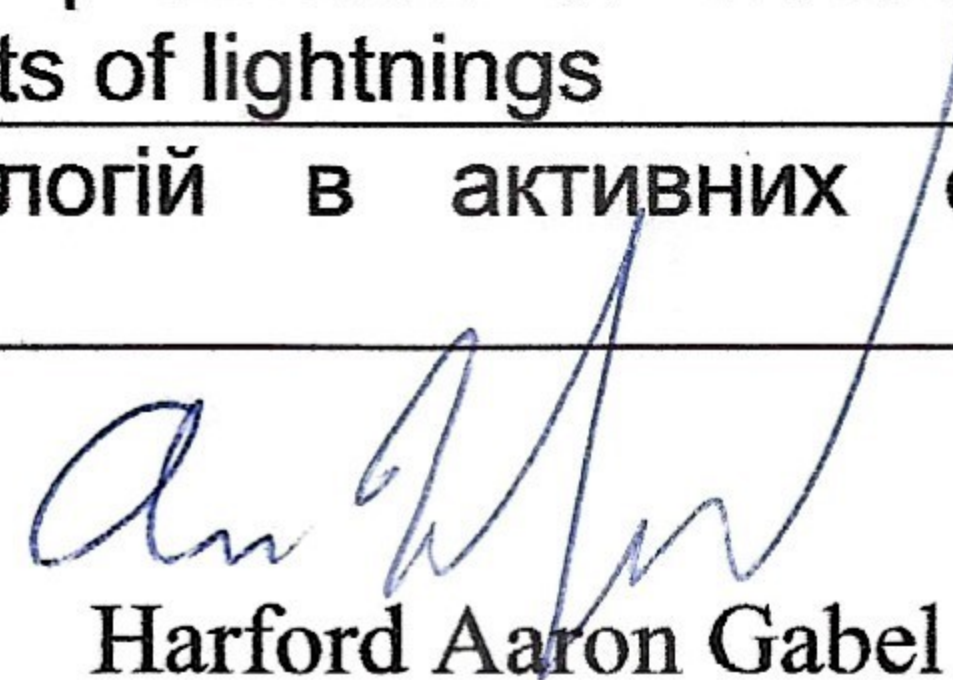 ts of lightnings
логій в активних
Harford Aaron Gabel